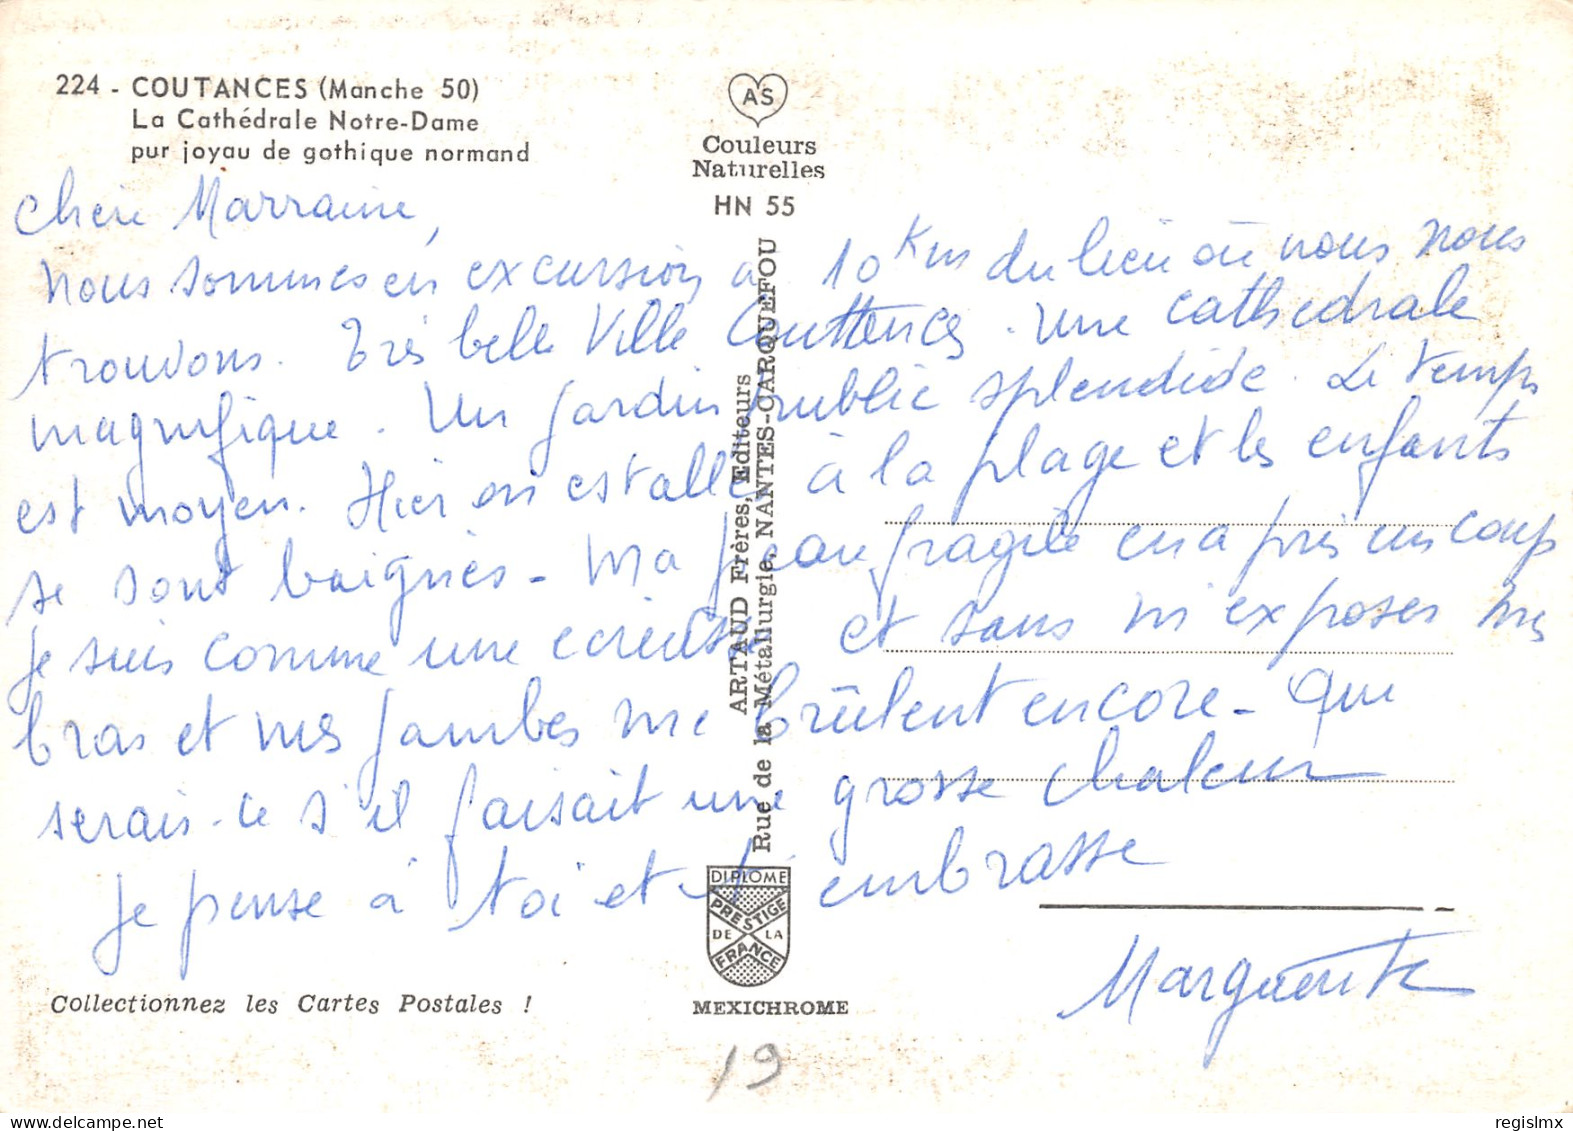 224 - COUTANCES (Manche 50)
La Cathédrale Notre-Dame
pur joyau de gothique normand
AS
Couleurs
Naturelles
HN 55
Chere Marraine,
nous sommes en excursion a 10 Kms du lieu où nous nous
trouvons. Très belle Ville Couttences. Une cathedrale
magnifique. Un jardin public splendide. Le temps
est moyen. Hier on est allé à la plage et les enfants
se sont baignés - Ma peau fragile en a pris un coup
Je suis comme une ecrevisse et sans m'exposer mes
bras et mes jambes me brûlent encore - Que
serais-ce s'il faisait une grosse chaleur
Je pense à toi et t'embrasse
Marguerite
ARTAUD Frères, Editeurs
Rue de la Métallurgie, NANTES-CARQUEFOU
DIPLOME
PRESTIGE
DE LA
FRANCE
MEXICHROME
Collectionnez les Cartes Postales !
19
regislmx